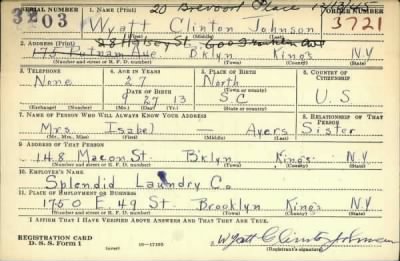 SERIAL NUMBER 1. NAME (Print) 20 Brevoort Place 12/13/45 ORDER NUMBER
3203 Wyatt Clinton Johnson 3721
(First) (Middle) (Last)
2. ADDRESS (Print) 28 Halsey St.
175 Putnam Ave Bklyn King's N.Y
(Number and street or R. F. D. number) (Town) (County) (State)
3. TELEPHONE 4. AGE IN YEARS 5. PLACE OF BIRTH 6. COUNTRY OF CITIZENSHIP
None 27 North
DATE OF BIRTH (Town or county)
9 27 13 S.C U.S
(Exchange) (Number) (Mo.) (Day) (Yr.) (State or country)
7. NAME OF PERSON WHO WILL ALWAYS KNOW YOUR ADDRESS 8. RELATIONSHIP OF THAT PERSON
Mrs. Isabel — Ayers Sister
(Mr., Mrs., Miss) (First) (Middle) (Last)
9. ADDRESS OF THAT PERSON
148 Macon St. Bklyn King's N.Y
(Number and street or R. F. D. number) (Town) (County) (State)
10. EMPLOYER'S NAME
Splendid Laundry Co.
11. PLACE OF EMPLOYMENT OR BUSINESS
1750 E 49 St. Brooklyn King's N.Y.
(Number and street or R. F. D. number) (Town) (County) (State)
I AFFIRM THAT I HAVE VERIFIED ABOVE ANSWERS AND THAT THEY ARE TRUE.
REGISTRATION CARD
D. S. S. Form 1 (over) 16-17105 Wyatt Clinton Johnson
(Registrant's signature)